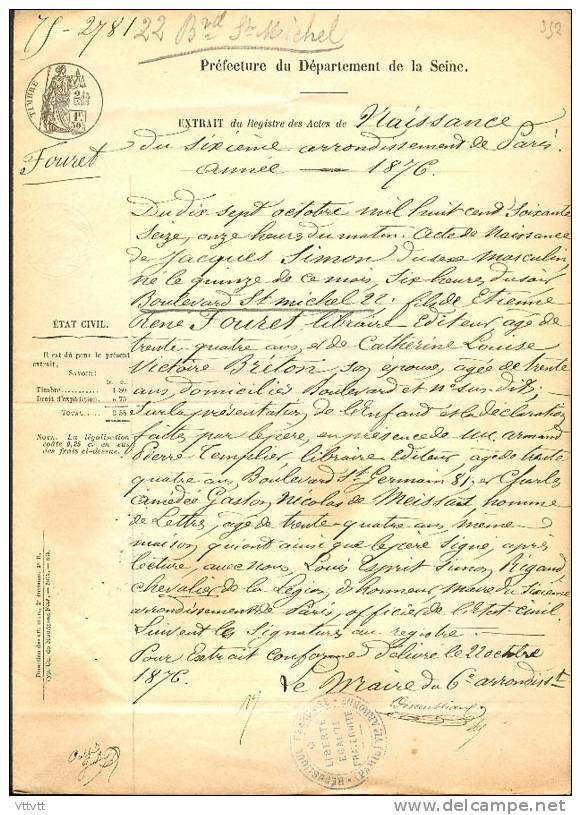 75-2781 22 Bvd St Michel
352
Préfecture du Département de la Seine.
TIMBRE
Fouret
EXTRAIT du Registre des Actes de Naissance
du sixième arrondissement de Paris.
année 1876.
Du dix sept octobre mil huit cent soixante
Seize, onze heures du matin. Acte de Naissance
de Jacques Simon du sexe masculin,
né le quinze de ce mois, six heures du soir
Boulevard St michel 22, fils de Etienne
René Fouret libraire Editeur âgé de
trente quatre ans, et de Catherine Louise
Victoire Bréton, son épouse, âgée de trente
ans domiciliés Boulevard et n° sus dits;
Sur la présentation de l'Enfant et la déclaration
faites par le père, en présence de MM. armand
Pierre Templier libraire Editeur âgé de trente
quatre ans, Boulevard St Germain 81, et Charles
amédée Gaston Nicolas de Meissas, homme
de Lettres, âgé de trente quatre ans même
maison, qui ont ainsi que le père signé, après
lecture, avec Nous, Louis Esprit Simon Rigaud
Chevalier de la Légion d'honneur Maire du Sixième
arrondissement de Paris, officier de l'état-civil.
Suivent les Signatures au registre.
Pour Extrait Conforme délivré le 22 octobre
1876.
Le Maire du 6e arrondist
ÉTAT CIVIL.
Il est dû pour le présent
extrait,
SAVOIR:
fr. c.
Timbre 1 80
Droit d'expédition 0 75
TOTAL 2 55
NOTA. La légalisation
coûte 0,25 c. en sus
des frais ci-dessus.
RÉPUBLIQUE FRANÇAISE
LIBERTÉ
EGALITÉ
FRATERNITÉ
Vttvtt
www.delcampe.net